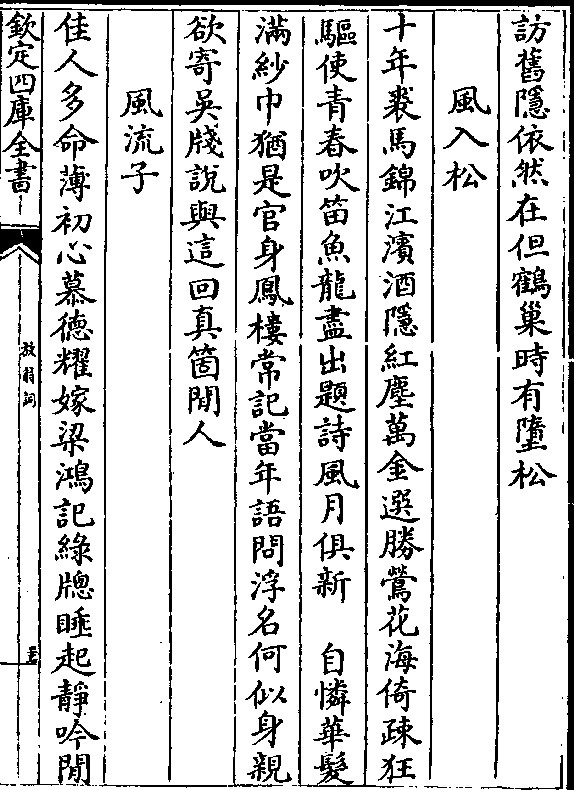 訪舊隱依然在但鶴巢時有墮松
風入松
十年裘馬錦江濱酒隱紅塵萬金選勝鶯花海倚疎狂
驅使青春吹笛魚龍盡出題詩風月俱新　自憐華髮
滿紗巾猶是官身鳳樓常記當年語問浮名何似身親
欲寄吳牋說與這回真箇閒人
風流子
佳人多命薄初心慕德耀嫁梁鴻記綠牕睡起靜吟閒
欽定四庫全書
放翁詞